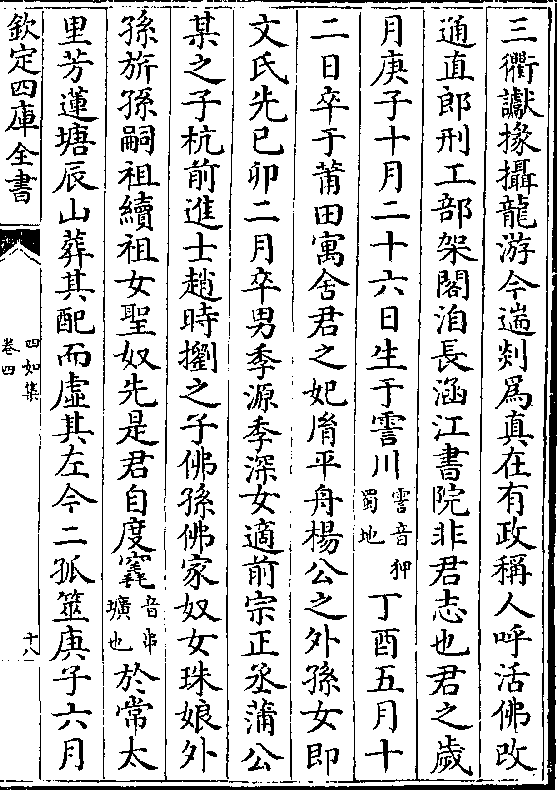 三衢讞掾攝龍游令遄剡為真在有政稱人呼活佛改
通直郎刑工部架閣洎長涵江書院非君志也君之歲
月庚子十月二十六日生于霅川霅音狎蜀地丁酉五月十
二日卒于莆田寓舍君之妃眉平舟楊公之外孫女即
文氏先已卯二月卒男季源季深女適前宗正丞蒲公
某之子杭前進士趙時㨨之子佛孫佛家奴女珠娘外
孫旂孫嗣祖續祖女聖奴先是君自度窆音弗壙也於常太
里芳蓮塘辰山葬其配而虛其左今二孤筮庚子六月
欽定四庫全書
四如集
卷四
十八